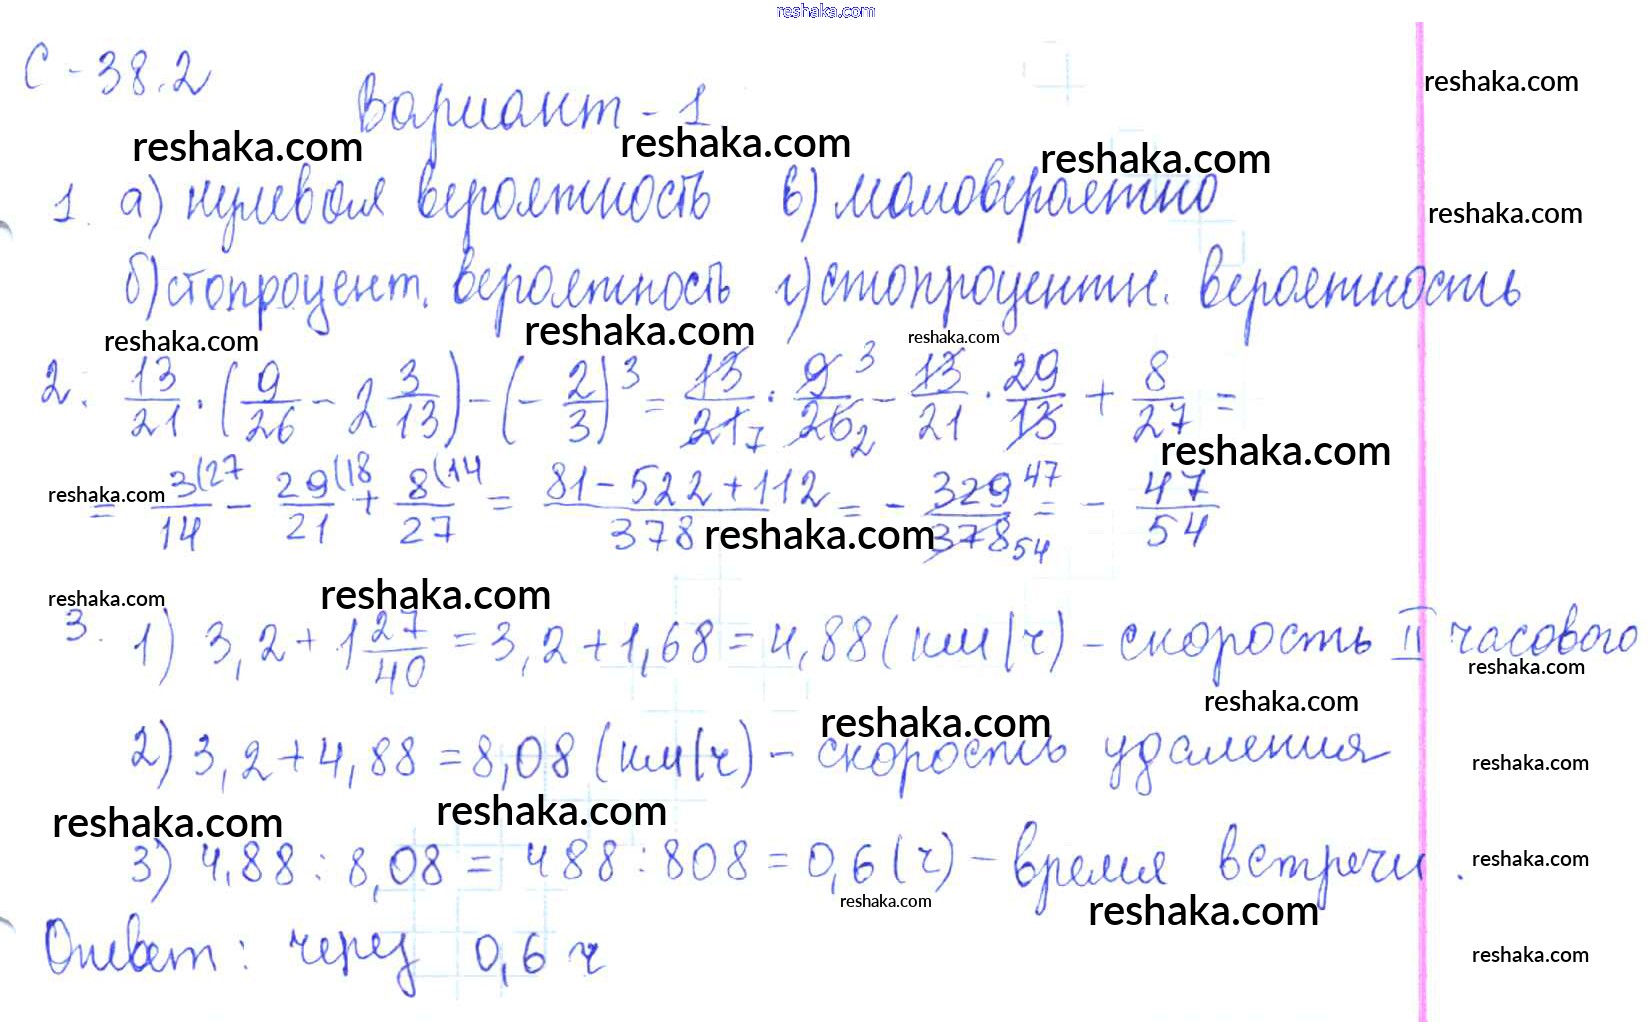 reshaka.com
С-38.2
Вариант-1
reshaka.com
reshaka.com reshaka.com reshaka.com
1. а) нулевая вероятность в) маловероятно
reshaka.com
б) стопроцент. вероятность г) стопроцентн. вероятность
reshaka.com reshaka.com reshaka.com
2. 13/21 · (9/26 - 2 3/13) - (- 2/3)^3 = 13/21 7 · 9 3/26 2 - 13/21 · 29/13 + 8/27 =
reshaka.com
reshaka.com = 3(27/14 - 29(18/21 + 8(14/27 = 81-522+112/378 = - 329 47/378 54 = - 47/54
reshaka.com
reshaka.com reshaka.com
3. 1) 3,2 + 1 27/40 = 3,2 + 1,68 = 4,88 (км/ч) - скорость II часового
reshaka.com
reshaka.com reshaka.com
2) 3,2 + 4,88 = 8,08 (км/ч) - скорость удаления
reshaka.com
reshaka.com reshaka.com
3) 4,88 : 8,08 = 488 : 808 = 0,6 (ч) - время встречи.
reshaka.com
reshaka.com reshaka.com
Ответ: через 0,6 ч
reshaka.com